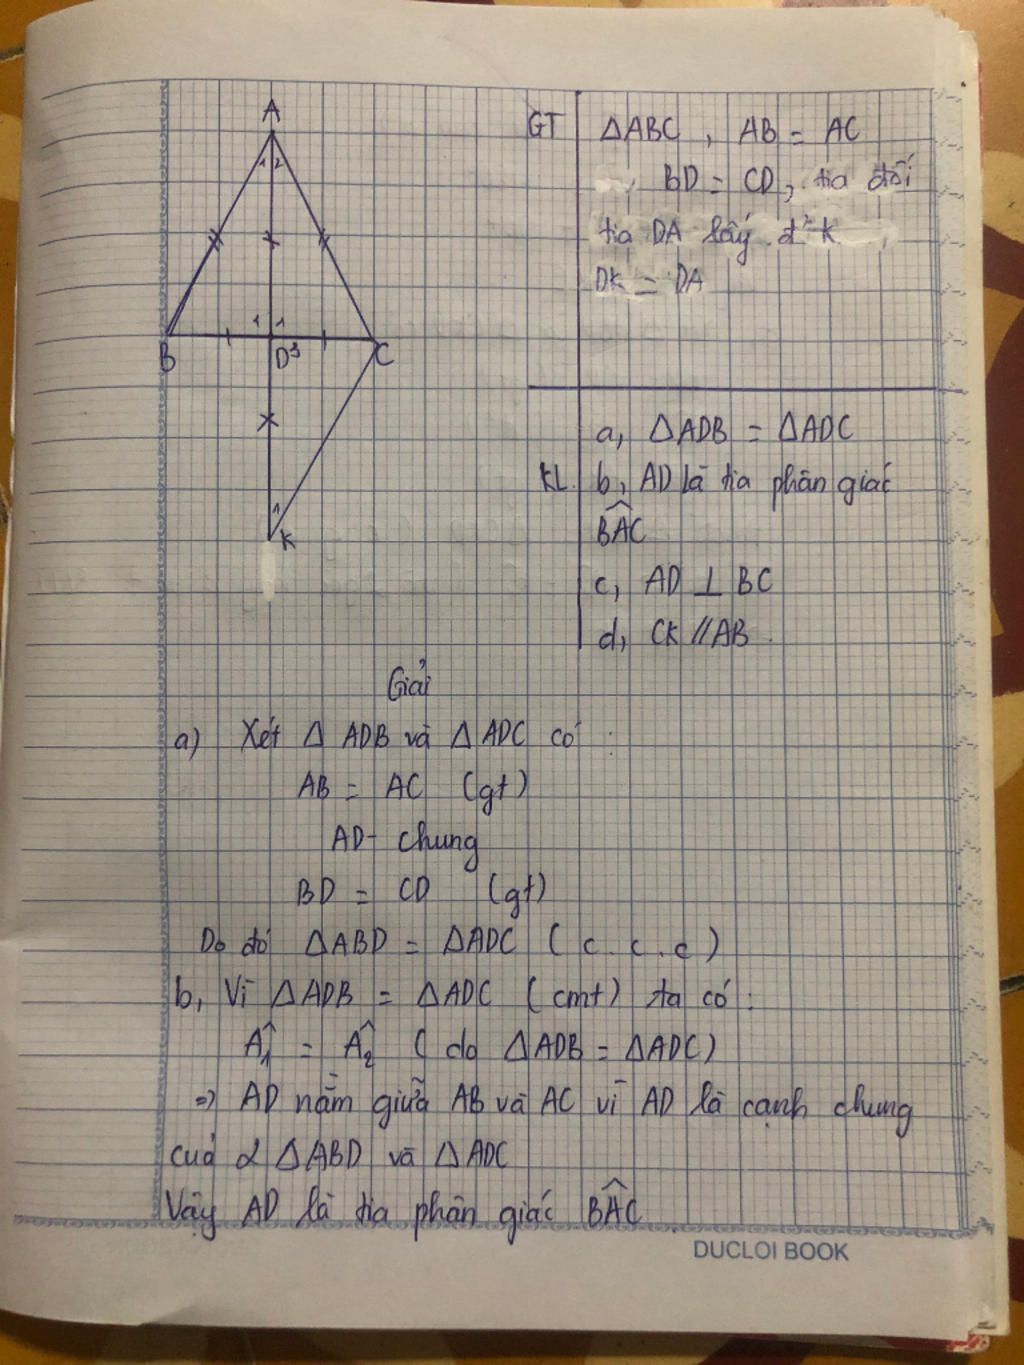 A
1 2
1 1
B
D 3
C
1
K
GT
ΔABC , AB = AC
BD = CD, tia đối
tia DA lấy đ² K
DK = DA
KL
a, ΔADB = ΔADC
b, AD là tia phân giác
BÂC
c, AD ⊥ BC
d, CK // AB
Giải
a) Xét Δ ADB và Δ ADC có :
AB = AC (gt)
AD chung
BD = CD (gt)
Do đó ΔABD = ΔADC ( c . c . c )
b, Vì ΔADB = ΔADC (cmt) ta có :
Â₁ = Â₂ ( do ΔADB = ΔADC)
=> AD nằm giữa AB và AC vì AD là cạnh chung
của 2 ΔABD và ΔADC
Vậy AD là tia phân giác BÂC
DUCLOI BOOK